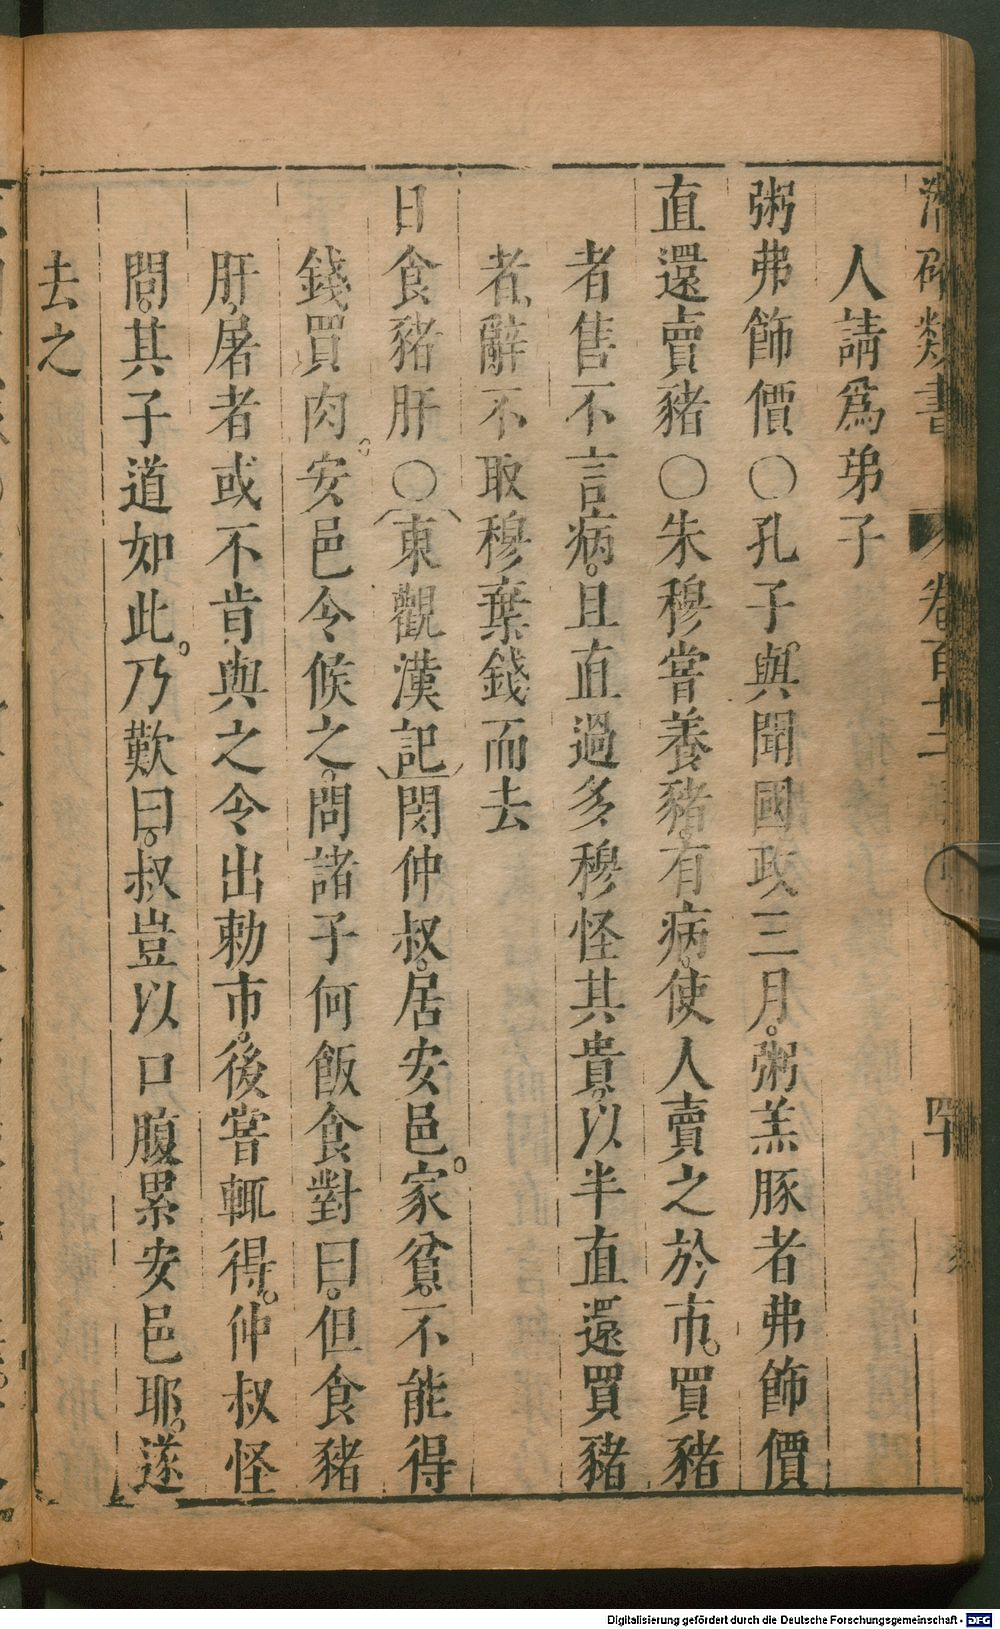 潛確類書 卷百十二 四十
人請爲弟子
粥弗飾價〇孔子與聞國政三月。粥羔豚者弗飾價
直還賣豬〇朱穆嘗養豬。有病。使人賣之於市。買豬
者售不言病。且直過多穆怪其貴。以半直還買豬
者。辭不取穆棄錢而去
日食豬肝〇東觀漢記閔仲叔。居安邑。家貧。不能得
錢買肉。安邑令候之。問諸子何飯食對曰。但食豬
肝。屠者或不肯與之令出勅市。後嘗輒得。仲叔怪
問。其子道如此。乃歎曰。叔豈以口腹累安邑耶。遂
去之
Digitalisierung gefördert durch die Deutsche Forschungsgemeinschaft - DFG